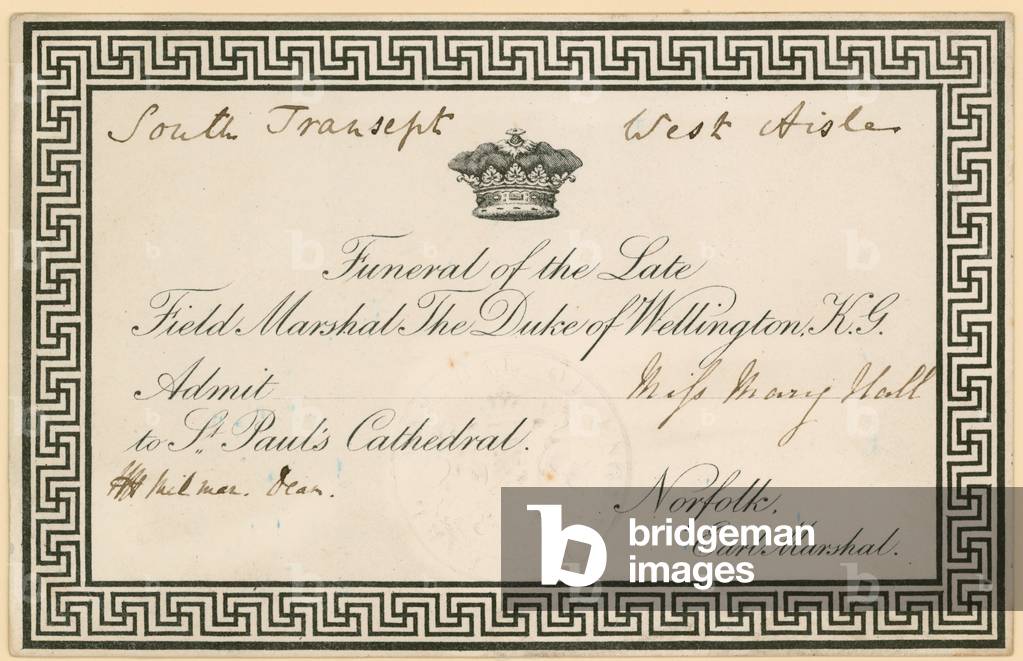 South Transept West Aisle
Funeral of the Late
Field Marshal The Duke of Wellington, K.G.
Admit Miss Mary Hall
to St. Paul's Cathedral.
HH Milman. Dean.
Norfolk,
Earl Marshal.
bridgeman
images